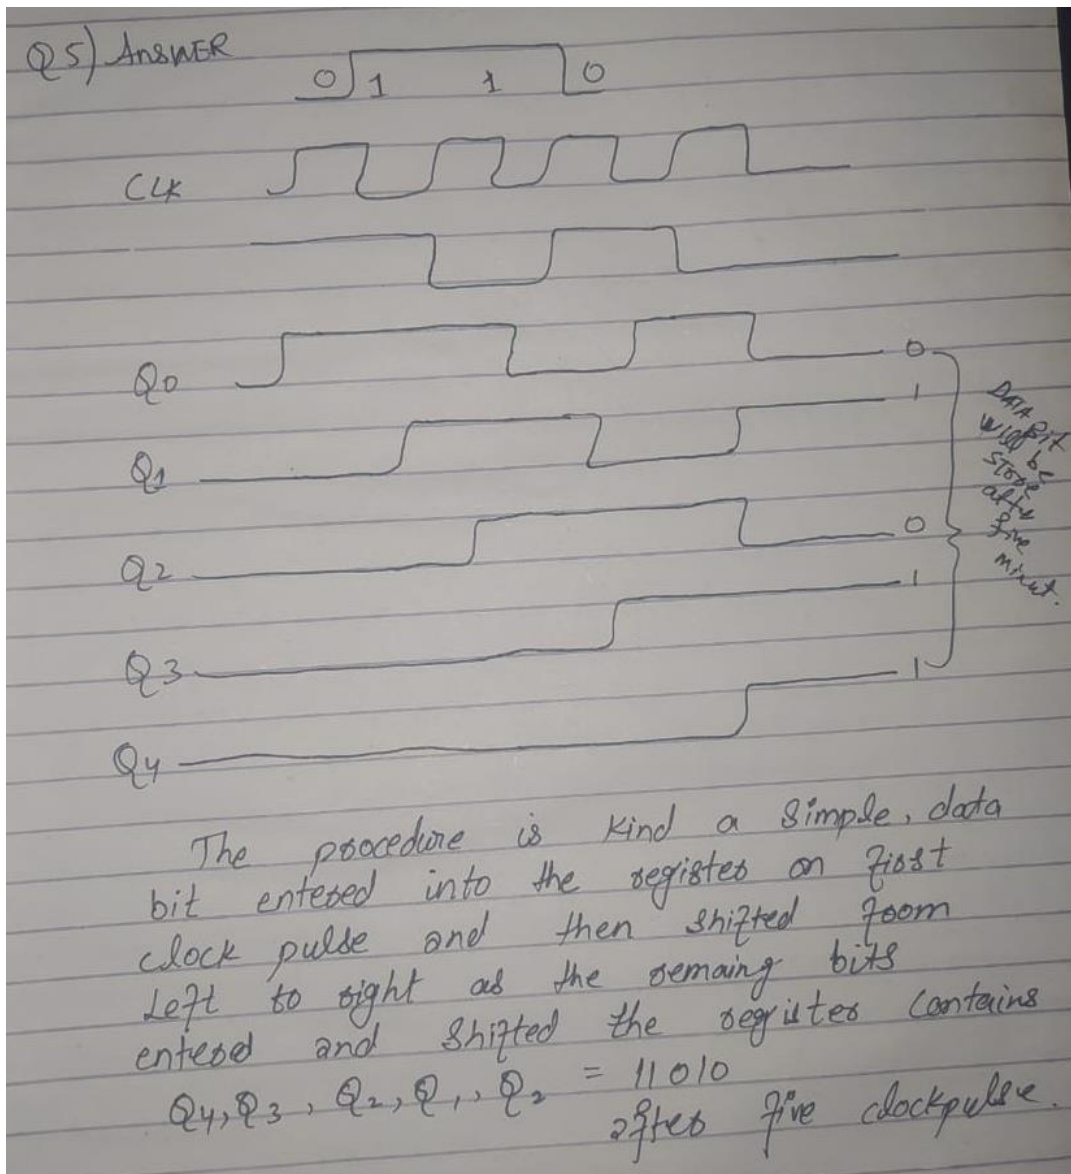 Q5) ANSWER
0 1 1 0
CLK
Q0 0
Q1 1
Q2 0
Q3 1
Q4 1
DATA Bit
will be
store
after
five
minut.
The procedure is kind a simple, data
bit entered into the register on first
clock pulse and then shifted from
Left to right as the remaing bits
entered and shifted the register contains
Q4, Q3, Q2, Q1, Q2 = 11010
after five clockpulse.